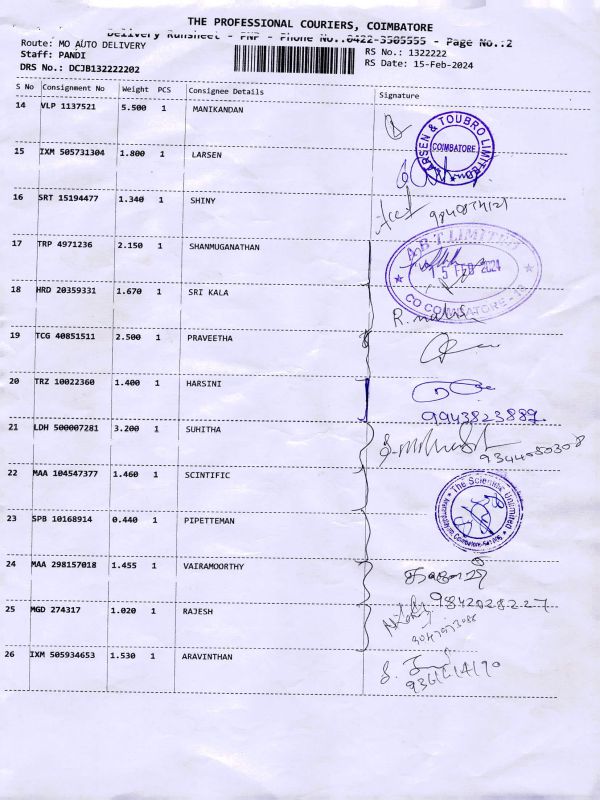 THE PROFESSIONAL COURIERS, COIMBATORE
Delivery Runsheet - PNP - Phone No.:0422-3505555 - Page No.:2
Route: MO AUTO DELIVERY
RS No.: 1322222
Staff: PANDI
RS Date: 15-Feb-2024
DRS No.: DCJB132222202
S No Consignment No Weight PCS Consignee Details Signature
14 VLP 1137521 5.500 1 MANIKANDAN
LARSEN & TOUBRO LIMITED
COIMBATORE
15 IXM 505731304 1.800 1 LARSEN
16 SRT 15194477 1.340 1 SHINY
17 TRP 4971236 2.150 1 SHANMUGANATHAN
A.B.T. LIMITED
15 FEB 2024
18 HRD 20359331 1.670 1 SRI KALA
19 TCG 40851511 2.500 1 PRAVEETHA
20 TRZ 10022360 1.400 1 HARSINI
9943823889.
21 LDH 500007281 3.200 1 SUHITHA
9344050308
22 MAA 104547377 1.460 1 SCINTIFIC
The Scientific Unlimited
23 SPB 10168914 0.440 1 PIPETTEMAN
24 MAA 298157018 1.455 1 VAIRAMOORTHY
25 MGD 274317 1.020 1 RAJESH
9842028227
26 IXM 505934653 1.530 1 ARAVINTHAN